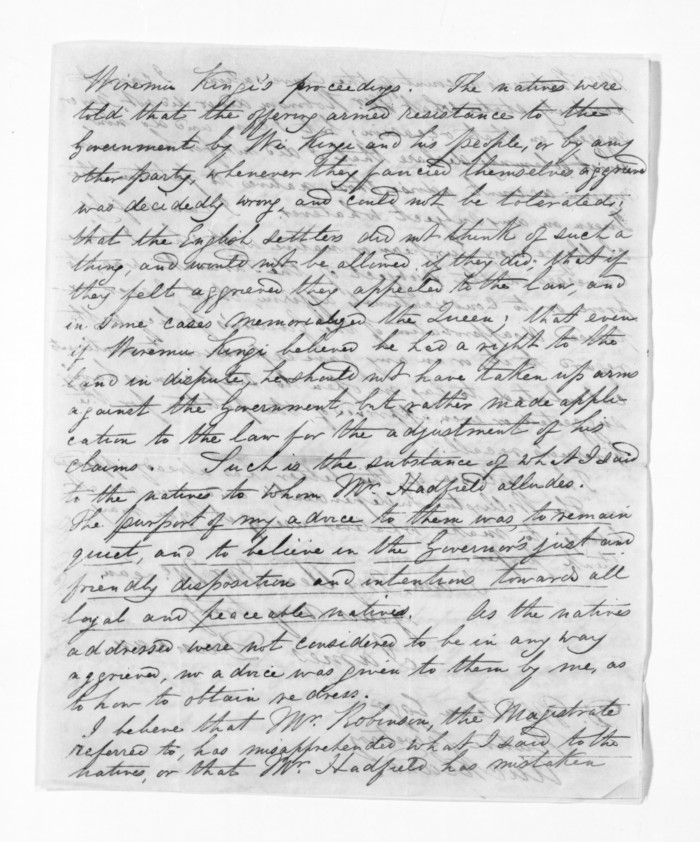 Wiremu Kingi's proceedings. The natives were
told that the offering armed resistance to the
Government by Wi Kingi and his people, or by any
other party, whenever they fancied themselves aggrieved
was decidedly wrong, and could not be tolerated;
that the English settlers did not think of such a
thing, and would not be allowed if they did. that if
they felt aggrieved they appealed to the law, and
in some cases memorialized the Queen; that even
if Wiremu Kingi believed he had a right to the
land in dispute, he should not have taken up arms
against the Government, but rather made appli-
cation to the law for the adjustment of his
claims. Such is the substance of what I said
to the natives to whom Mr. Hadfield alludes.
The purport of my advice to them was, to remain
quiet, and to believe in the Governor's just and
friendly disposition and intentions towards all
loyal and peaceable natives. As the natives
addressed were not considered to be in any way
aggrieved, no advice was given to them by me, as
to how to obtain redress.
I believe that Mr. Robinson, the Magistrate
referred to, has misapprehended what I said to the
natives, or that Mr. Hadfield has mistaken